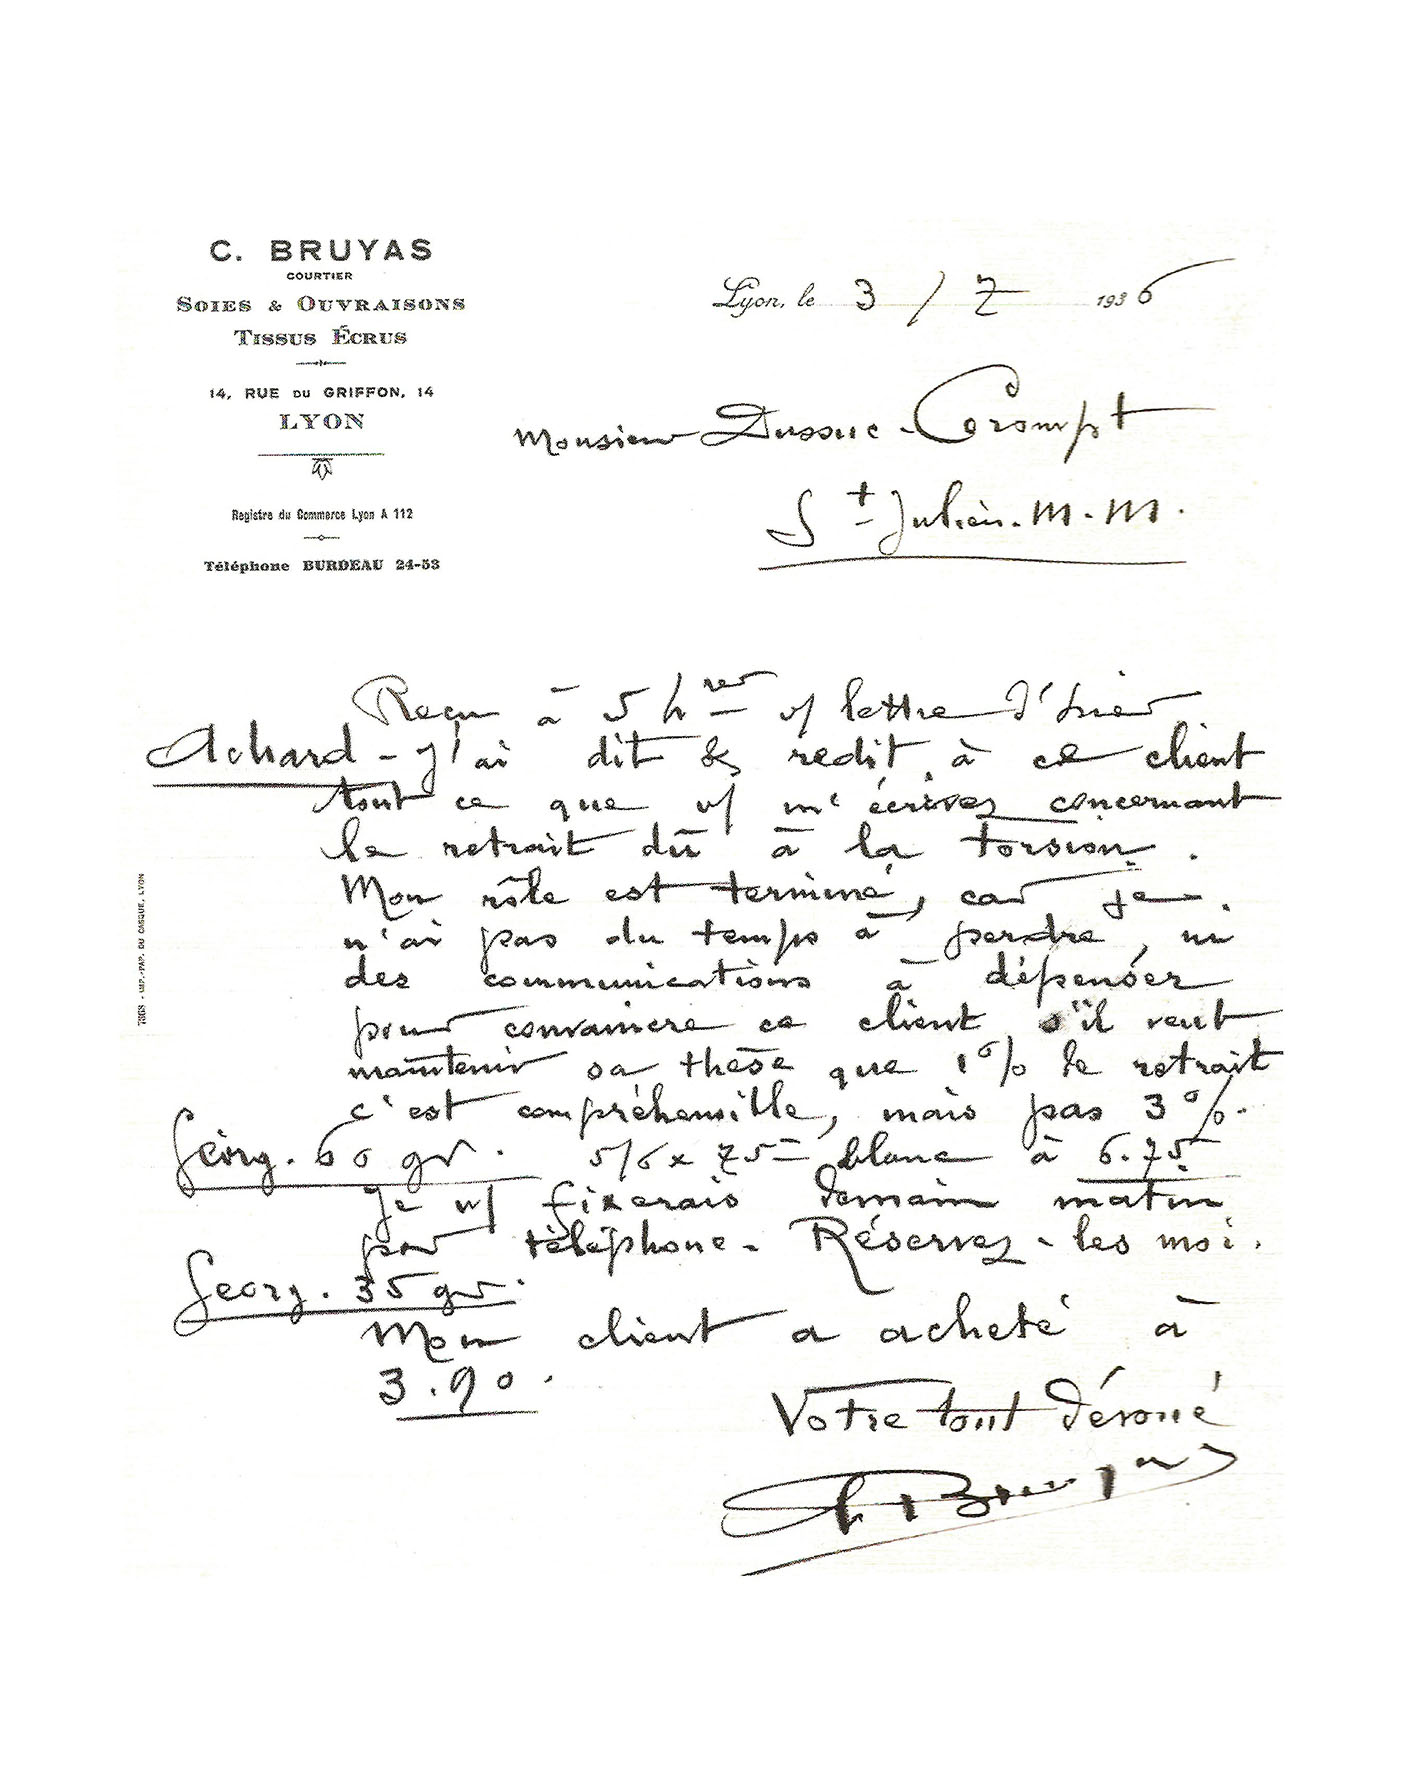 C. BRUYAS
COURTIER
SOIES & OUVRAISONS
TISSUS ÉCRUS
14, RUE DU GRIFFON, 14
LYON
Registre du Commerce Lyon A 112
Téléphone BURDEAU 24-53
Lyon, le 3 / 7 1936
Monsieur Dussuc-Corompt
St Julien. M. M.
Reçu à 5 hres v/ lettre d'hier
Achard - J'ai dit & redit à ce client
tout ce que v/ m'écrivez concernant
le retrait dû à la torsion.
Mon rôle est terminé, car je
n'ai pas du temps à perdre, ni
des communications à dépenser
pour convaincre ce client s'il veut
maintenir sa thèse que 1% de retrait
c'est compréhensible, mais pas 3%.
Georg. 60 gr. 5/6 x 75 = blanc à 6.75
Je v/ fixerais demain matin
par téléphone. Réservez-les moi.
Georg. 35 gr.
Mon client a acheté à
3.90.
Votre tout dévoué
C. Bruyas
7868 - IMP.-PAP. DU CASQUE, LYON